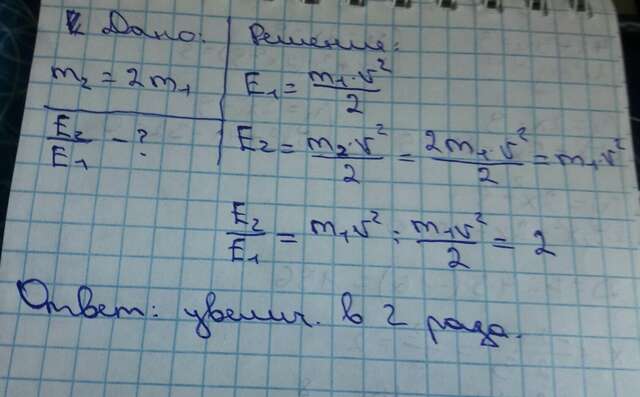 Дано:
m₂ = 2m₁
E₂/E₁ - ?
Решение:
E₁ = m₁·v²/2
E₂ = m₂·v²/2 = 2m₁·v²/2 = m₁v²
E₂/E₁ = m₁v² : m₁v²/2 = 2
Ответ: увелич. в 2 раза.